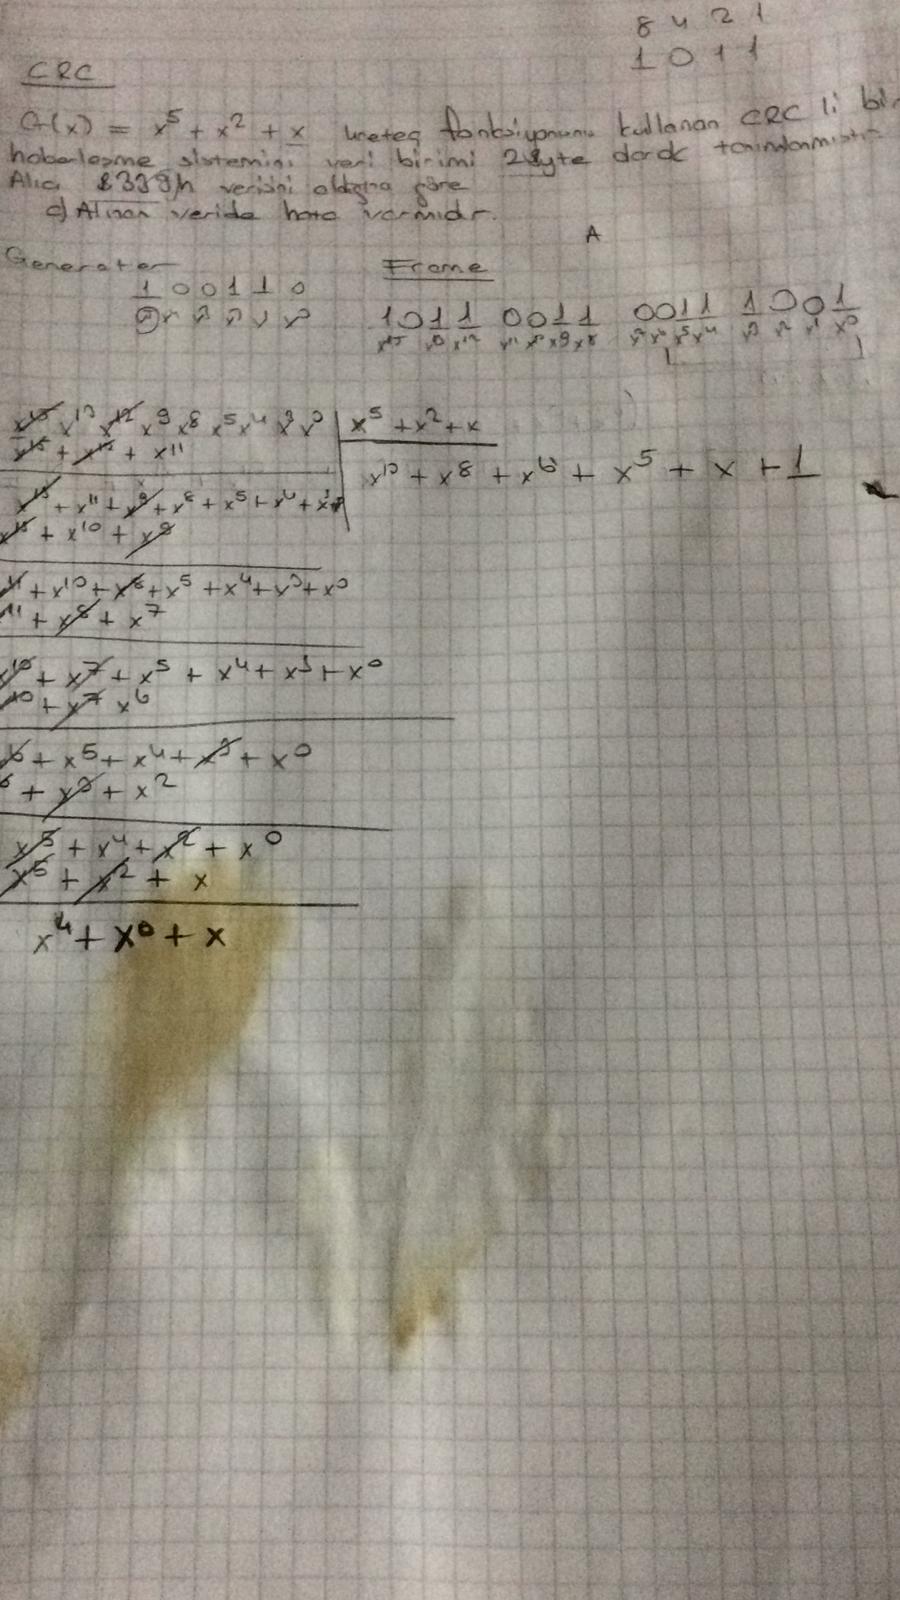 8 4 2 1
1 0 1 1
CRC
G(x) = x⁵ + x² + x üreteç fonksiyonunu kullanan CRC li bir
haberleşme sistemini veri birimi 2 Byte olarak tanımlanmıştır
Alıcı B339h verisini aldığına göre
a) Alınan veride hata varmıdır.
A
Generator Frame
1 0 0 1 1 0
1011 0011 0011 1001
x¹⁵ x¹³ x¹² x⁹ x⁸ x⁵ x⁴ x³ x⁰ x⁵ + x² + x
x¹⁵ + x¹² + x¹¹
x¹⁰ + x⁸ + x⁶ + x⁵ + x + 1
x¹³ + x¹¹ + x⁹ + x⁸ + x⁵ + x⁴ + x³
x¹³ + x¹⁰ + x⁹
x¹¹ + x¹⁰ + x⁸ + x⁵ + x⁴ + x³ + x⁰
x¹¹ + x⁸ + x⁷
x¹⁰ + x⁷ + x⁵ + x⁴ + x³ + x⁰
x¹⁰ + x⁷ x⁶
x⁶ + x⁵ + x⁴ + x³ + x⁰
x⁶ + x³ + x²
x⁵ + x⁴ + x² + x⁰
x⁵ + x² + x
x⁴ + x⁰ + x